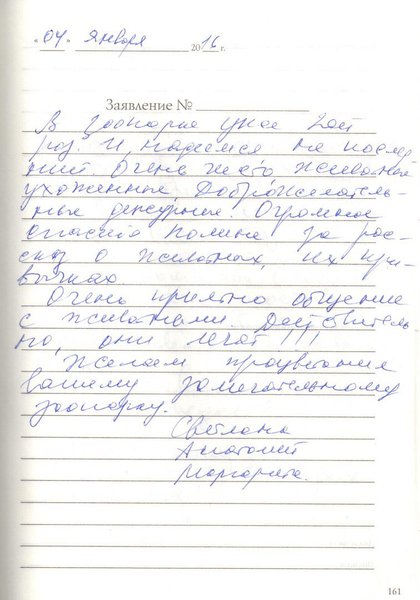 "04" января 2016 г.
Заявление №
В зоопарке уже 2ой
раз. И надеемся не послед-
ний. Очень чисто животные
ухоженные. Доброжелатель-
ные дежурные. Огромное
спасибо Полине за рас-
сказ о животных, их при-
вычках.
Очень приятно общение
с животными. Действитель-
но, они лечат!!!
Желаем процветания
вашему замечательному
зоопарку.
Светлана
Анатолий
Маргарита.
161